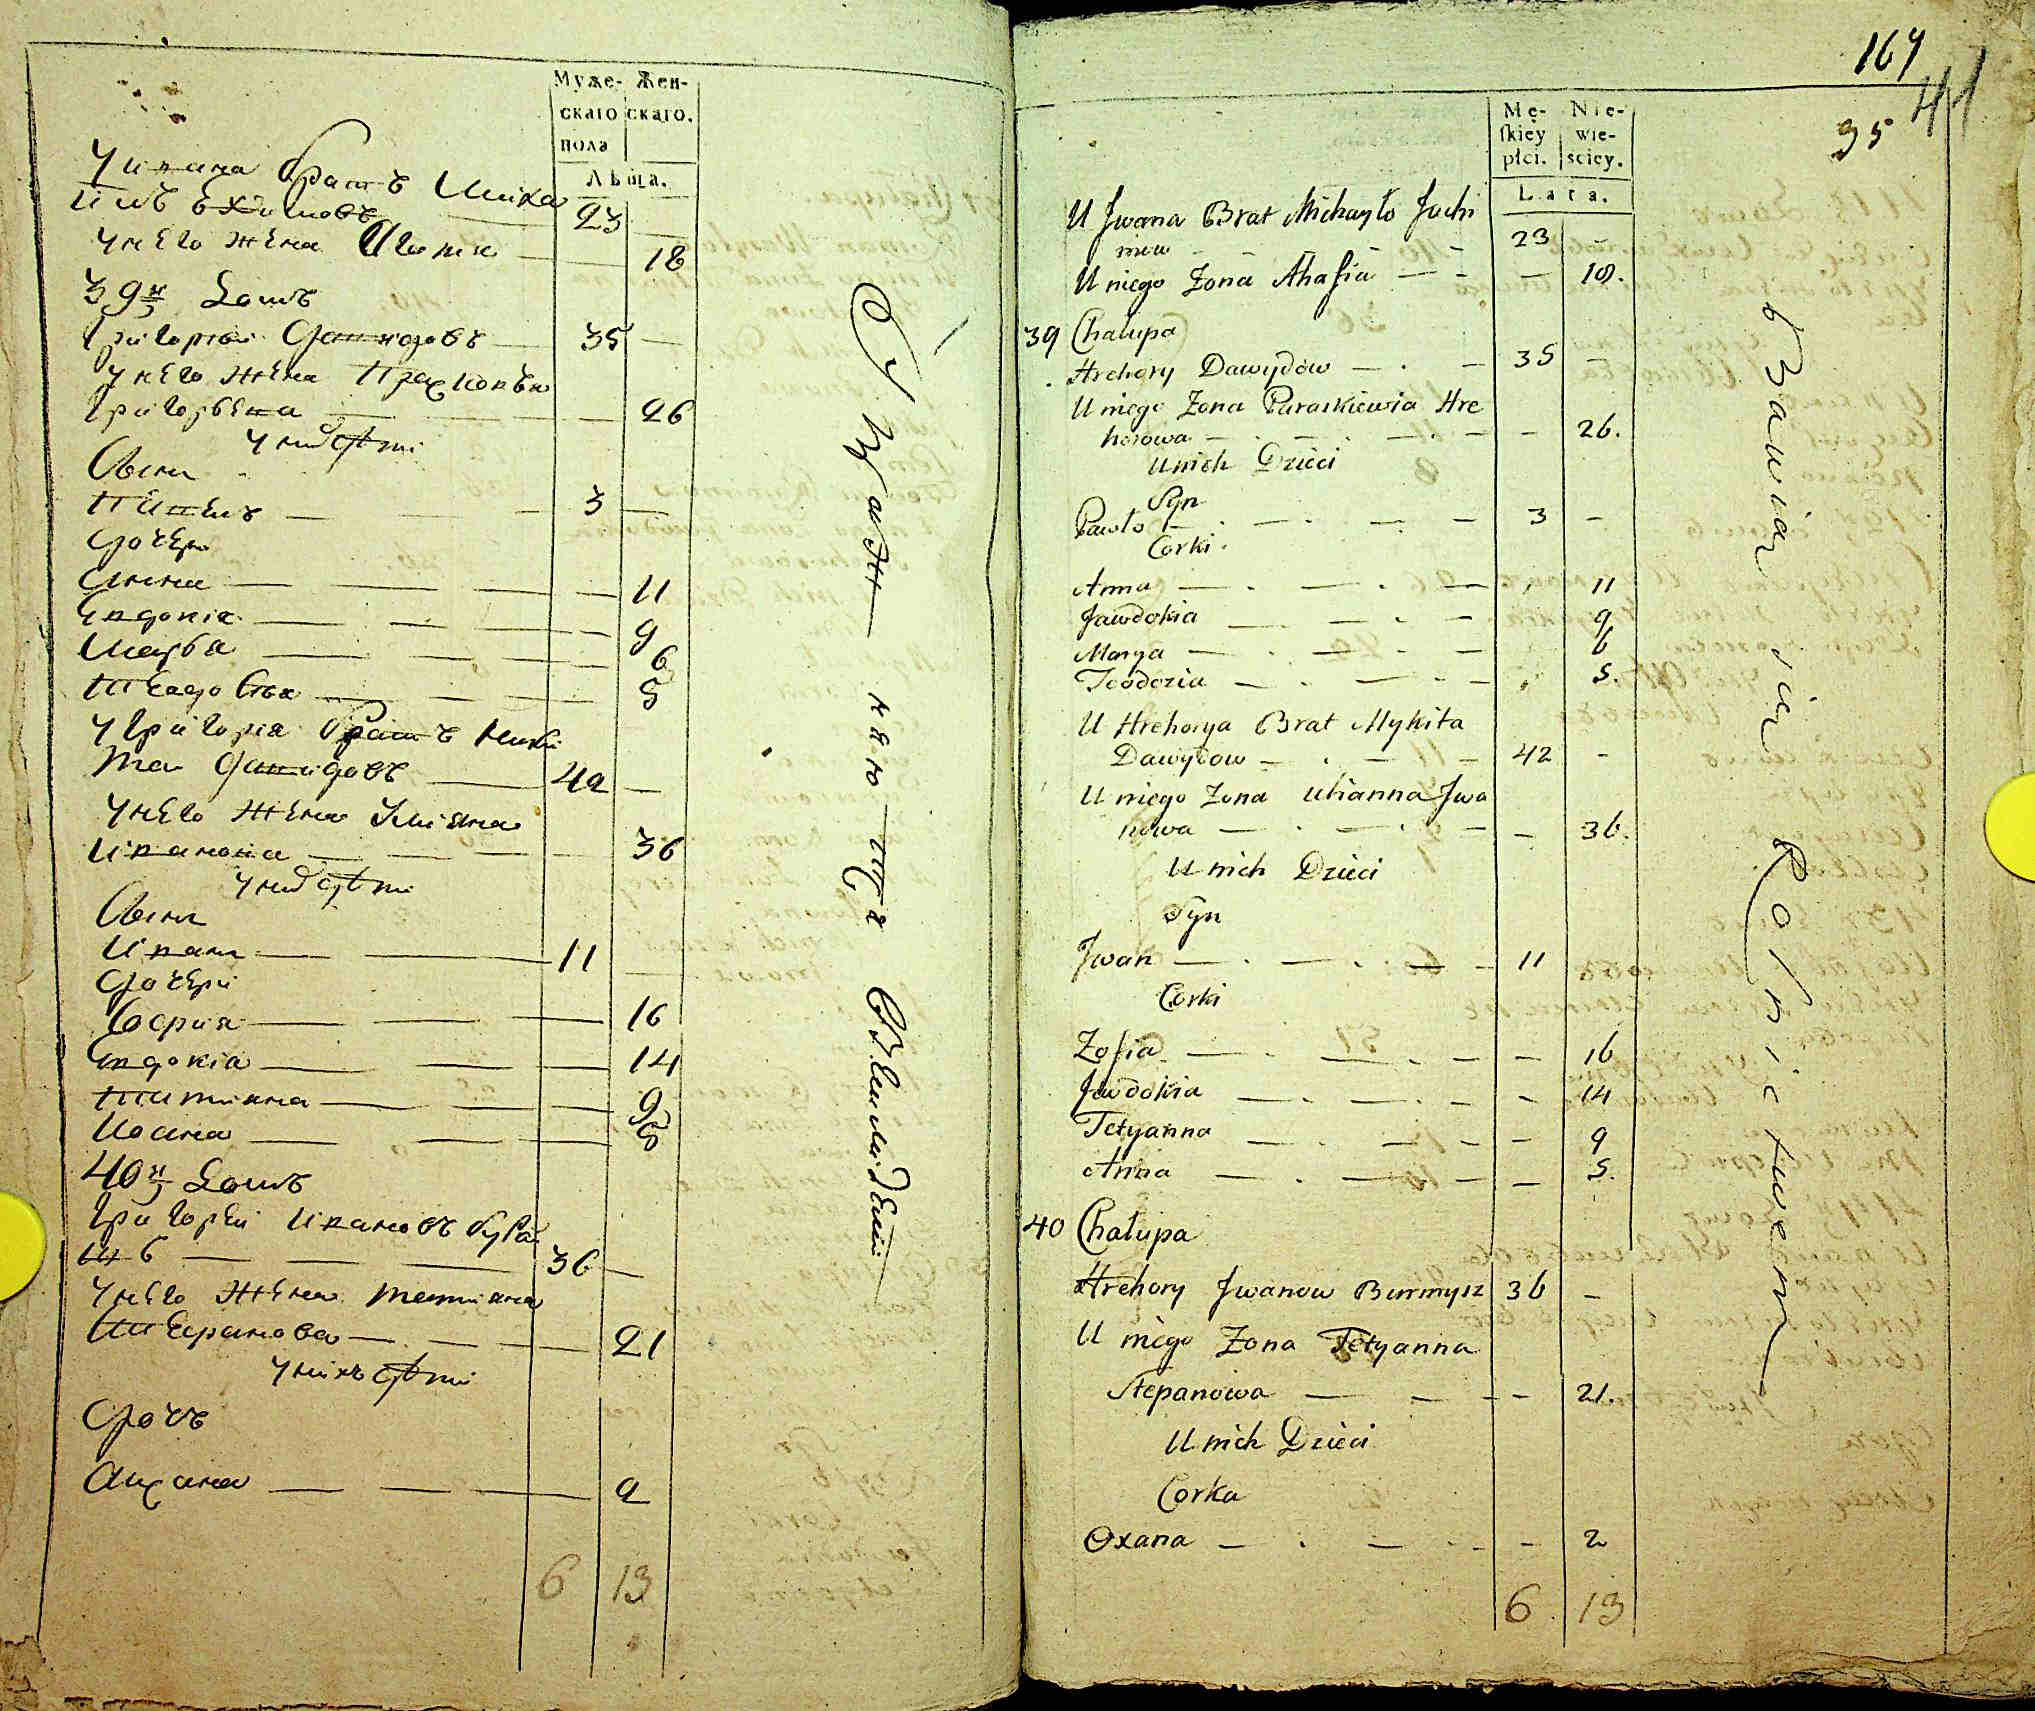 Муже- Жен-
скаго скаго.
пола
Лѣта.
У ивана братъ миха
илъ ехимовъ 23
у него жена Агафия 18
39й Домъ
Григорей Давидовъ 35
у него жена Прасковья
Григорьева 26
у них дѣти
Сынъ
Павелъ 3
Дочери
Анна 11
Евдокія 9
Марья 6
Феодосья 5
у Григорія братъ Ники
та Давидовъ 42
у него жена Улияна
Иванова 36
у них дѣти
Сынъ
Иванъ 11
Дочери
София 16
Евдокіа 14
Татияна 9
Иоанна 5
40й Домъ
Григорей Ивановъ
36
у него жена татияна
Степанова 21
у нихъ дѣти
Дочь
Аксана 2
6 13
167
41
35
Mę- Nie-
skiey wie-
płci. sciey.
Lata.
U Jwana Brat Michayło Juchi
mow 23
U niego Zona Ahafia 18.
39 Chałupa
Hrehory Dawydow 35
U niego Zona Paraskiewia Hre
horowa 26.
U nich Dzieci
Syn
Pawło 3
Corki
Anna 11
Jawdokia 9
Marya 6
Teodozia 5.
U Hrehorya Brat Mykita
Dawydow 42
U niego Zona Ulianna Jwa
nowa 36.
U nich Dzieci
Syn
Jwan 11
Corki
Zofia 16
Jewdokia 14
Tetyanna 9
Anna 5.
40 Chałupa
Hrehory Jwanow Burmysz 36
U niego Zona Tetyanna
Stepanowa 21.
U nich Dzieci
Corka
Oxana 2
6 13
Bawią się Rolnictwem